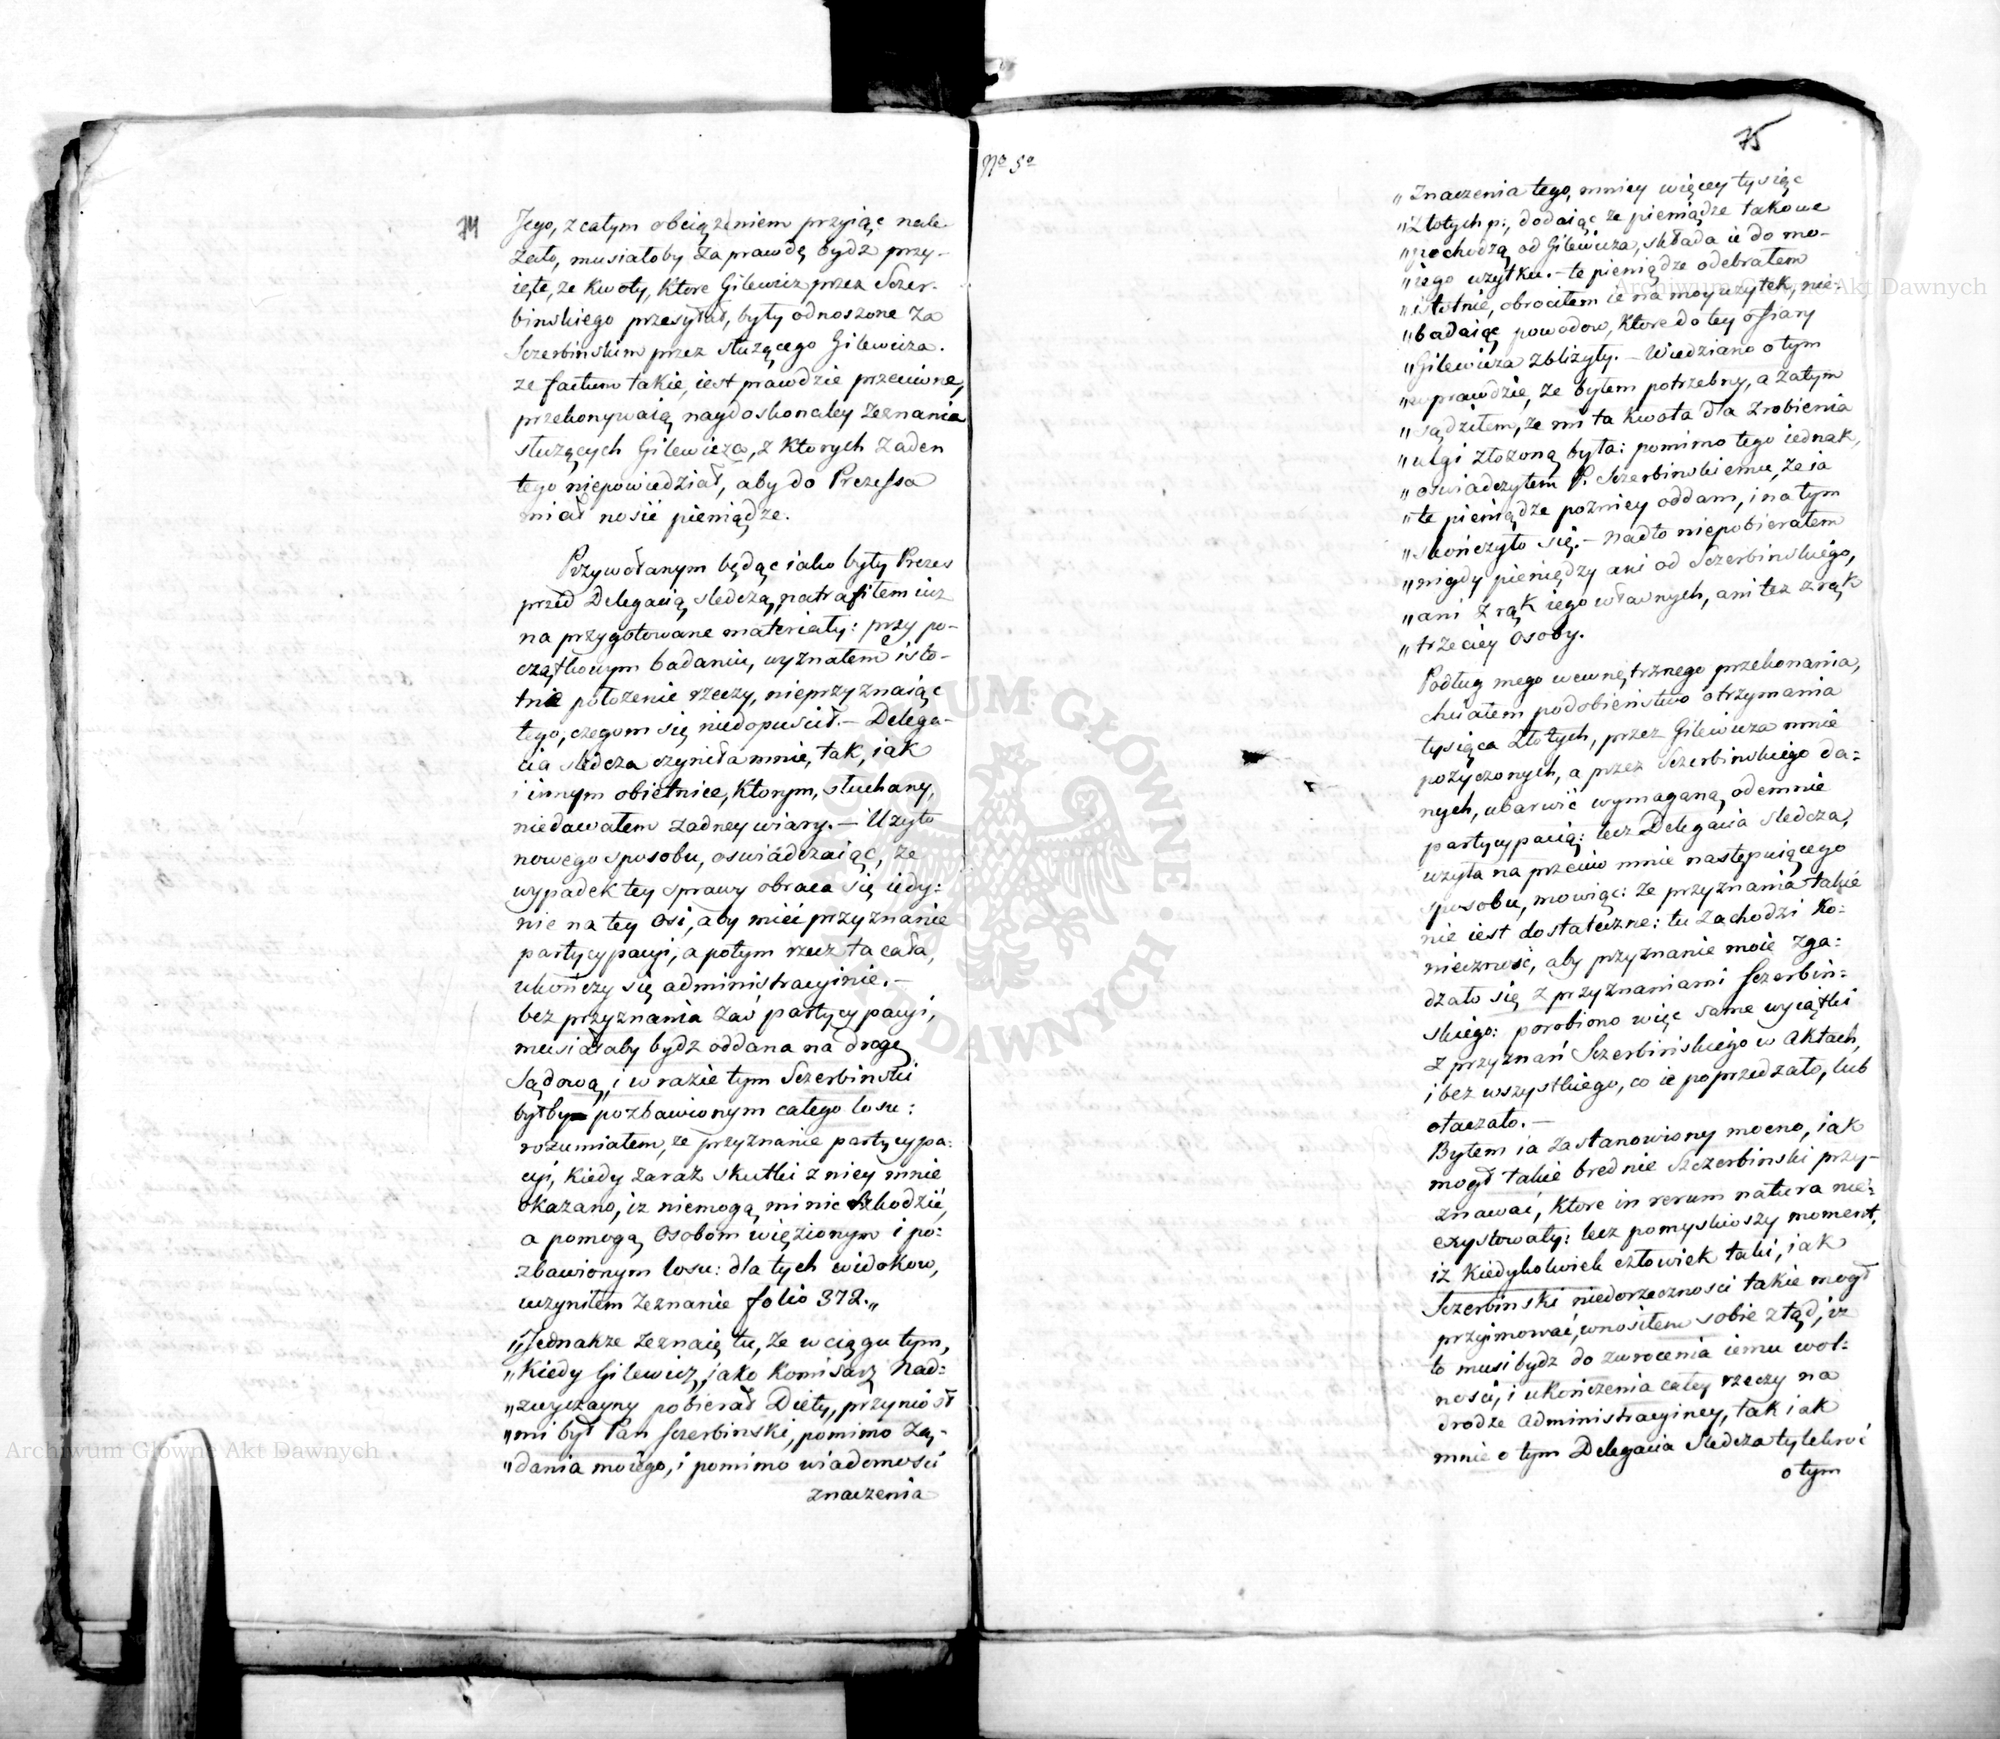 74
Jego, z całym obciążeniem przyiąc nale-
żało, musiałoby za prawdę bydz przy-
ięte, ze kwoty, ktore Gilewicz przez Sczer-
binskiego przesyłał, były odnoszone za
Sczerbinskim przez służącego Gilewicza.
ze factum takie, iest prawdzie przeciwne,
przekonywaią naydoskonaley zeznania
służących Gilewicza, z ktorych zaden
tego niepowiedział, aby do Prezessa
miał nosić pieniądze.
Przywołanym będąc iako były Prezes
przed Delegacią sledczą, natrafiłem iuz
na przygotowane materiały: przy po-
czątkowym badaniu, wyznałem isto-
tnie położenie rzeczy, nieprzyznaiąc
tego, czegom się niedopuscił. — Delega-
cia sledcza czyniła mnie, tak, iak
i innym obietnice, ktorym, słuchany,
niedawałem zadney wiary. — Uzyto
nowego sposobu, oswiadczaiąc, ze
wypadek tey sprawy obraca się iedy:
nie na tey osi, aby mieć przyznanie
partycypacyi, a potym rzecz ta cała,
ukończy się administracyinie. —
bez przyznania zaś partycypacyi,
musiałaby bydz oddana na drogę
Sądową, i w razie tym Sczerbinski
byłby pozbawionym całego losu:
rozumiałem, ze przyznanie partycypa:
cyi, kiedy zaraz skutki z niey mnie
okazano, iz niemogą mi nic szkodzić,
a pomogą osobom więzionym i po:
zbawionym losu: dla tych widokow,
uczyniłem zeznanie folio 372.„
„Jednakze zeznaię tu, ze w ciągu tym,
„kiedy Gilewicz, jako Komisarz Nad:
„zwyczayny pobierał Diety, przyniosł
„mi był Pan Sczerbinski, pomimo Zą-
„dania moiego, i pomimo wiadomosci
znaczenia
No 5o
75
„Znaczenia tego, mniey więcey tysiąc
„Złotych p:, dodaiąc ze pieniądze takowe
„pochodzą od Gilewicza, składa ie do mo-
„iego uzytku. — te pieniądze odebrałem
„istotnie, obrociłem ie na moy uzytek, nie-
„badaiąc powodow, ktore do tey ofiary
„Gilewicza zblizyły. — Wiedziano o tym
„wprawdzie, ze byłem potrzebny, a zatym
„sądziłem, ze mi ta kwota dla zrobienia
„ulgi złozoną była: pomimo tego iednak,
„oswiadczyłem P. Sczerbinskiemu, ze ia
„te pieniądze pozniey oddam, i na tym
„skończyło się. — Nadto niepobierałem
„nigdy pieniędzy ani od Sczerbinskiego,
„ani z rąk iego własnych, ani tez z rąk
„trzeciey osoby.
Podług mego wewnętrznego przekonania,
chciałem podobieństwo otrzymania
tysiąca Złotych, przez Gilewicza mnie
pozyczonych, a przez Sczerbinskiego da:
nych, ubarwić wymaganą odemnie
partycypacią: lecz Delegacia sledcza,
uzyła na przeciw mnie następuiącego
sposobu, mowiąc: ze przyznania takie
nie iest dostateczne: tu zachodzi ko:
nieczność, aby przyznanie moie zga:
dzało się z przyznaniami Sczerbin:
skiego: porobiono więc same wyciątki
z przyznań Sczerbińskiego w Aktach,
i bez wszystkiego, co ie poprzedzało, lub
otaczało. —
Byłem ia zastanowiony mocno, iak
mogł takie brednie Szczerbinski przy-
znawać, ktore in rerum natura nie:
exystowały: lecz pomyslniszy moment,
iz kiedykolwiek człowiek taki, iak
Sczerbinski niedorzecznosci takie mogł
przyimować, wnosiłem sobie ztąd, iz
to musi bydz do zwrocenia iemu wol:
nosci, i ukończenia całey rzeczy na
drodze administracyiney, tak iak
mnie o tym Delegacia Sledcza tylekroć
o tym